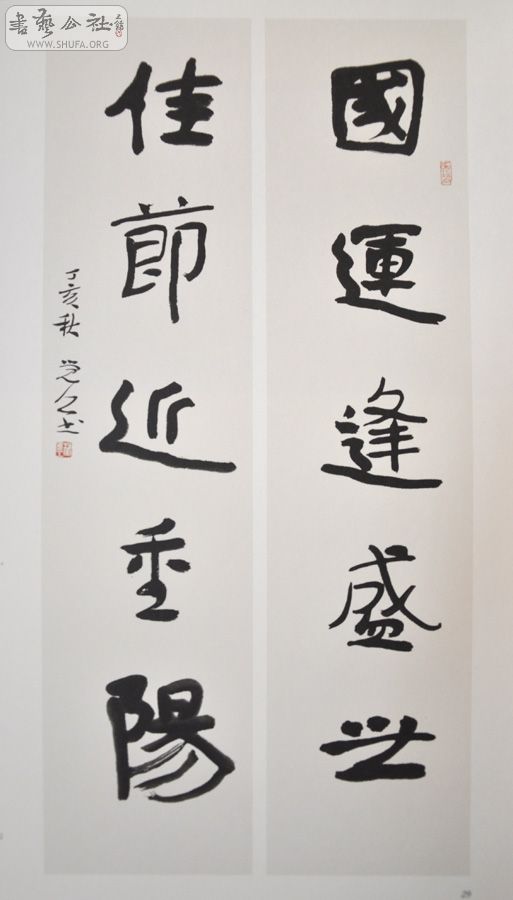 書藝公社
WWW.SHUFA.ORG
國運逢盛世
佳節近重陽
丁亥秋
29